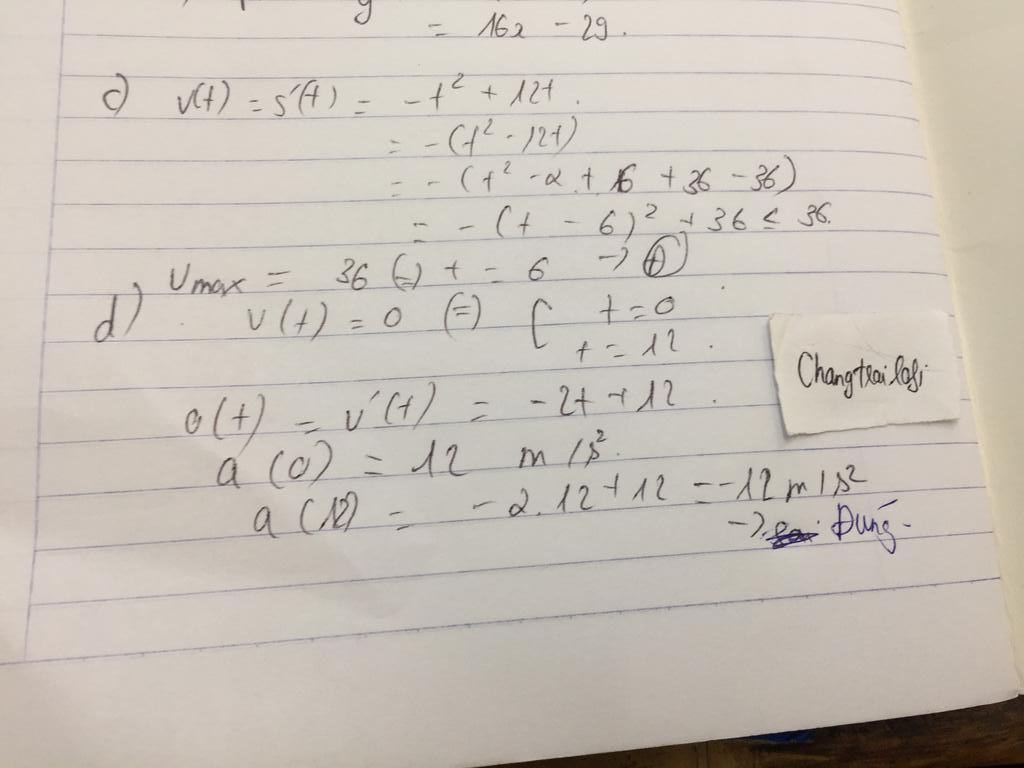 = 16x - 29.
c) v(t) = s'(t) = -t² + 12t.
= -(t² - 12t)
= -(t² - 2.t.6 + 36 - 36)
= -(t - 6)² + 36 ≤ 36.
Vmax = 36 (=) t = 6 → Đ
d) v(t) = 0 (=) [ t = 0
t = 12.
Changtrailofi
a(t) = v'(t) = -2t + 12.
a(0) = 12 m/s².
a(12) = -2.12 + 12 = -12 m/s²
→ Đúng.